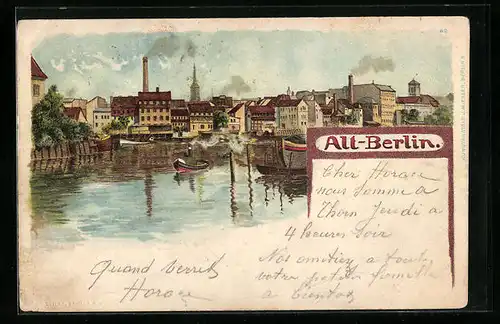 Alt-Berlin.
Cher Horace
nous somme a
Thorn Jeudi a
4 heures soir
Nos amitiez a toute
votre petite famille
a bientot
Quand verrek
Horace